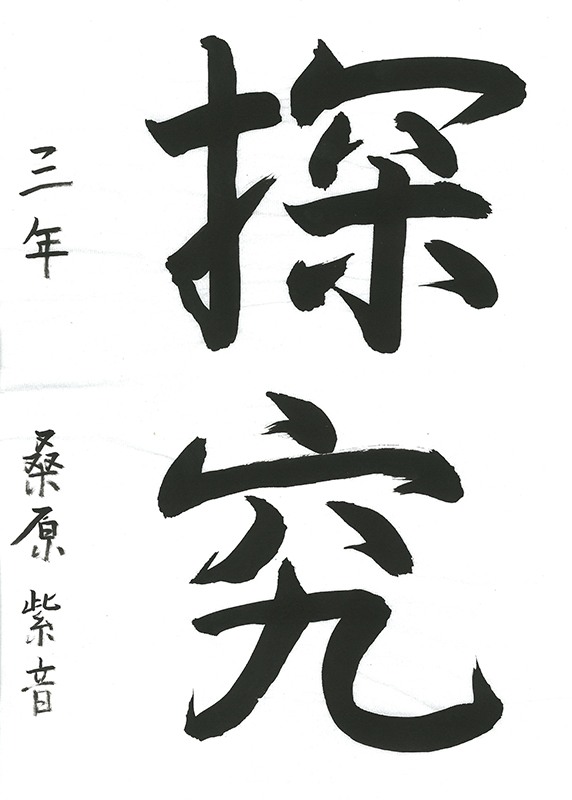 探究
三年 桑原 紫音